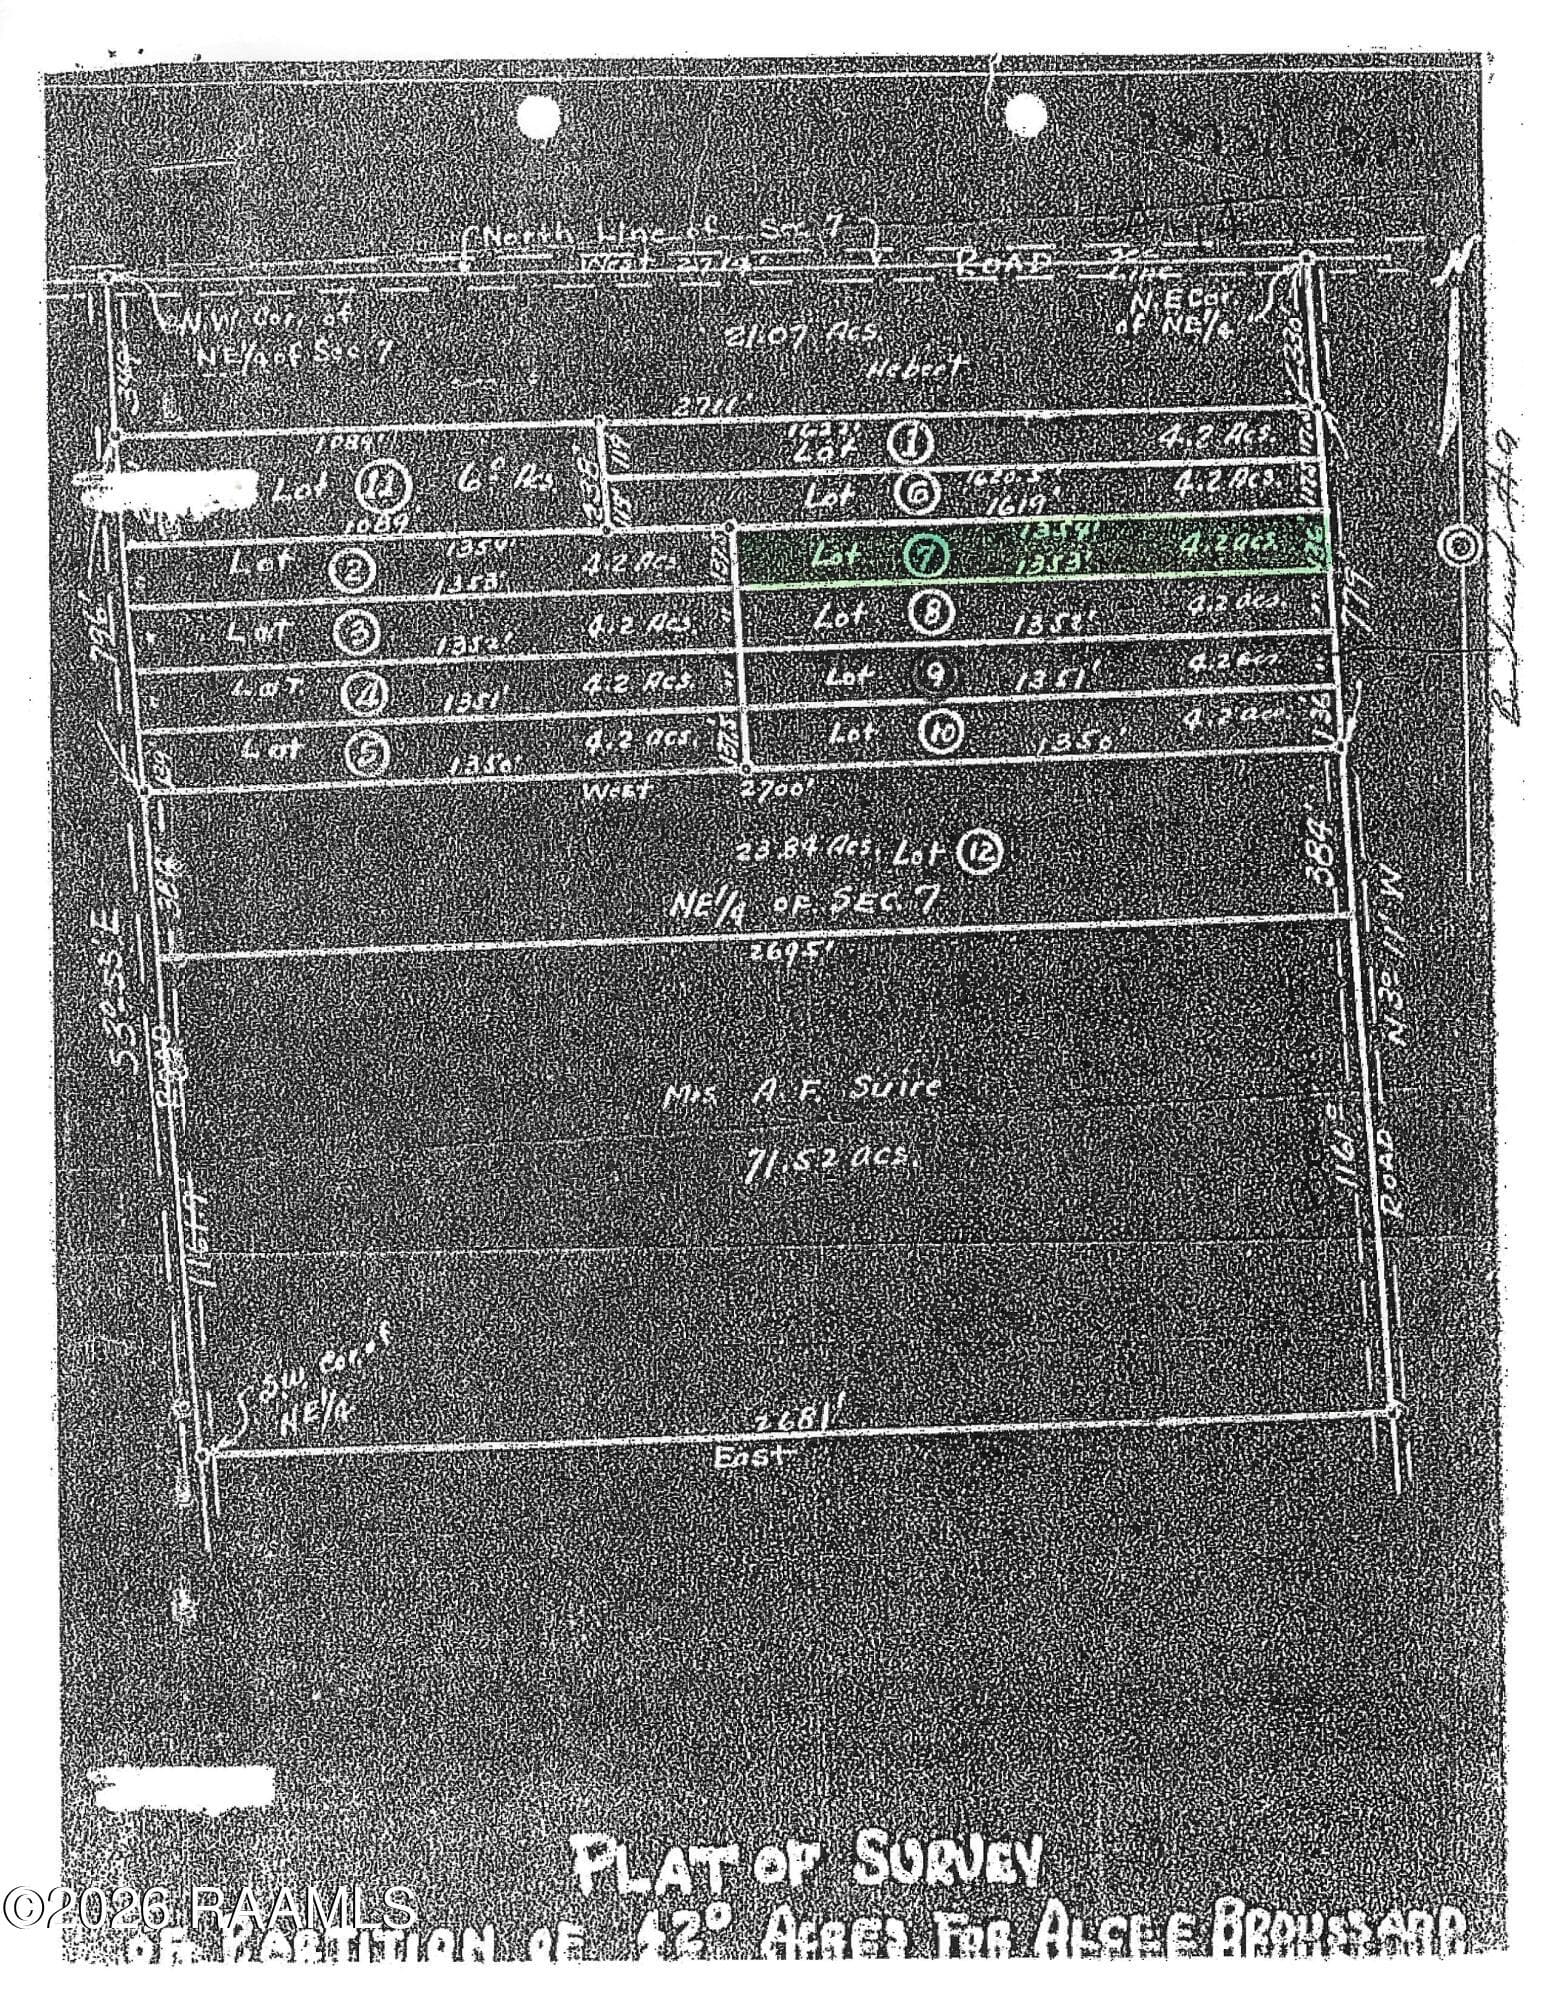 North Line of Sec 7
West
ROAD
N.W. Cor. of
NE1/4 of Sec 7
N.E Cor.
of NE1/4
N
21.07 Acs.
Hebert
330'
2711'
1089'
Lot 11 6º Acs.
1089
238'
119
Lot 1 4.2 Acs.
Lot 6 1620.5' 4.2 Acs.
1619'
Lot 2 1354' 4.2 Acs
1353'
Lot 7 1354' 4.2 acs
1353'
136
Lot 3 1352' 4.2 Acs
Lot 8 1352' 4.2 acs.
Lot 4 1351' 4.2 Acs
Lot 9 1351' 4.2 acs
Lot 5 1350' 4.2 acs.
Lot 10 1350' 4.2 acs
136
796'
779
West 2700'
23.84 Acs. Lot 12
384'
NE1/4 OF SEC. 7
2695'
S3º55'E
N3º11'W
ROAD
ROAD
Mrs A. F. Suire
71.52 acs.
1161º
1164.9
S.W. Cor. of
NE1/4
2681'
East
PLAT OF SURVEY
OF PARTITION OF 42º ACRES FOR ALCEE BROUSSARD
©2026 RAAMLS